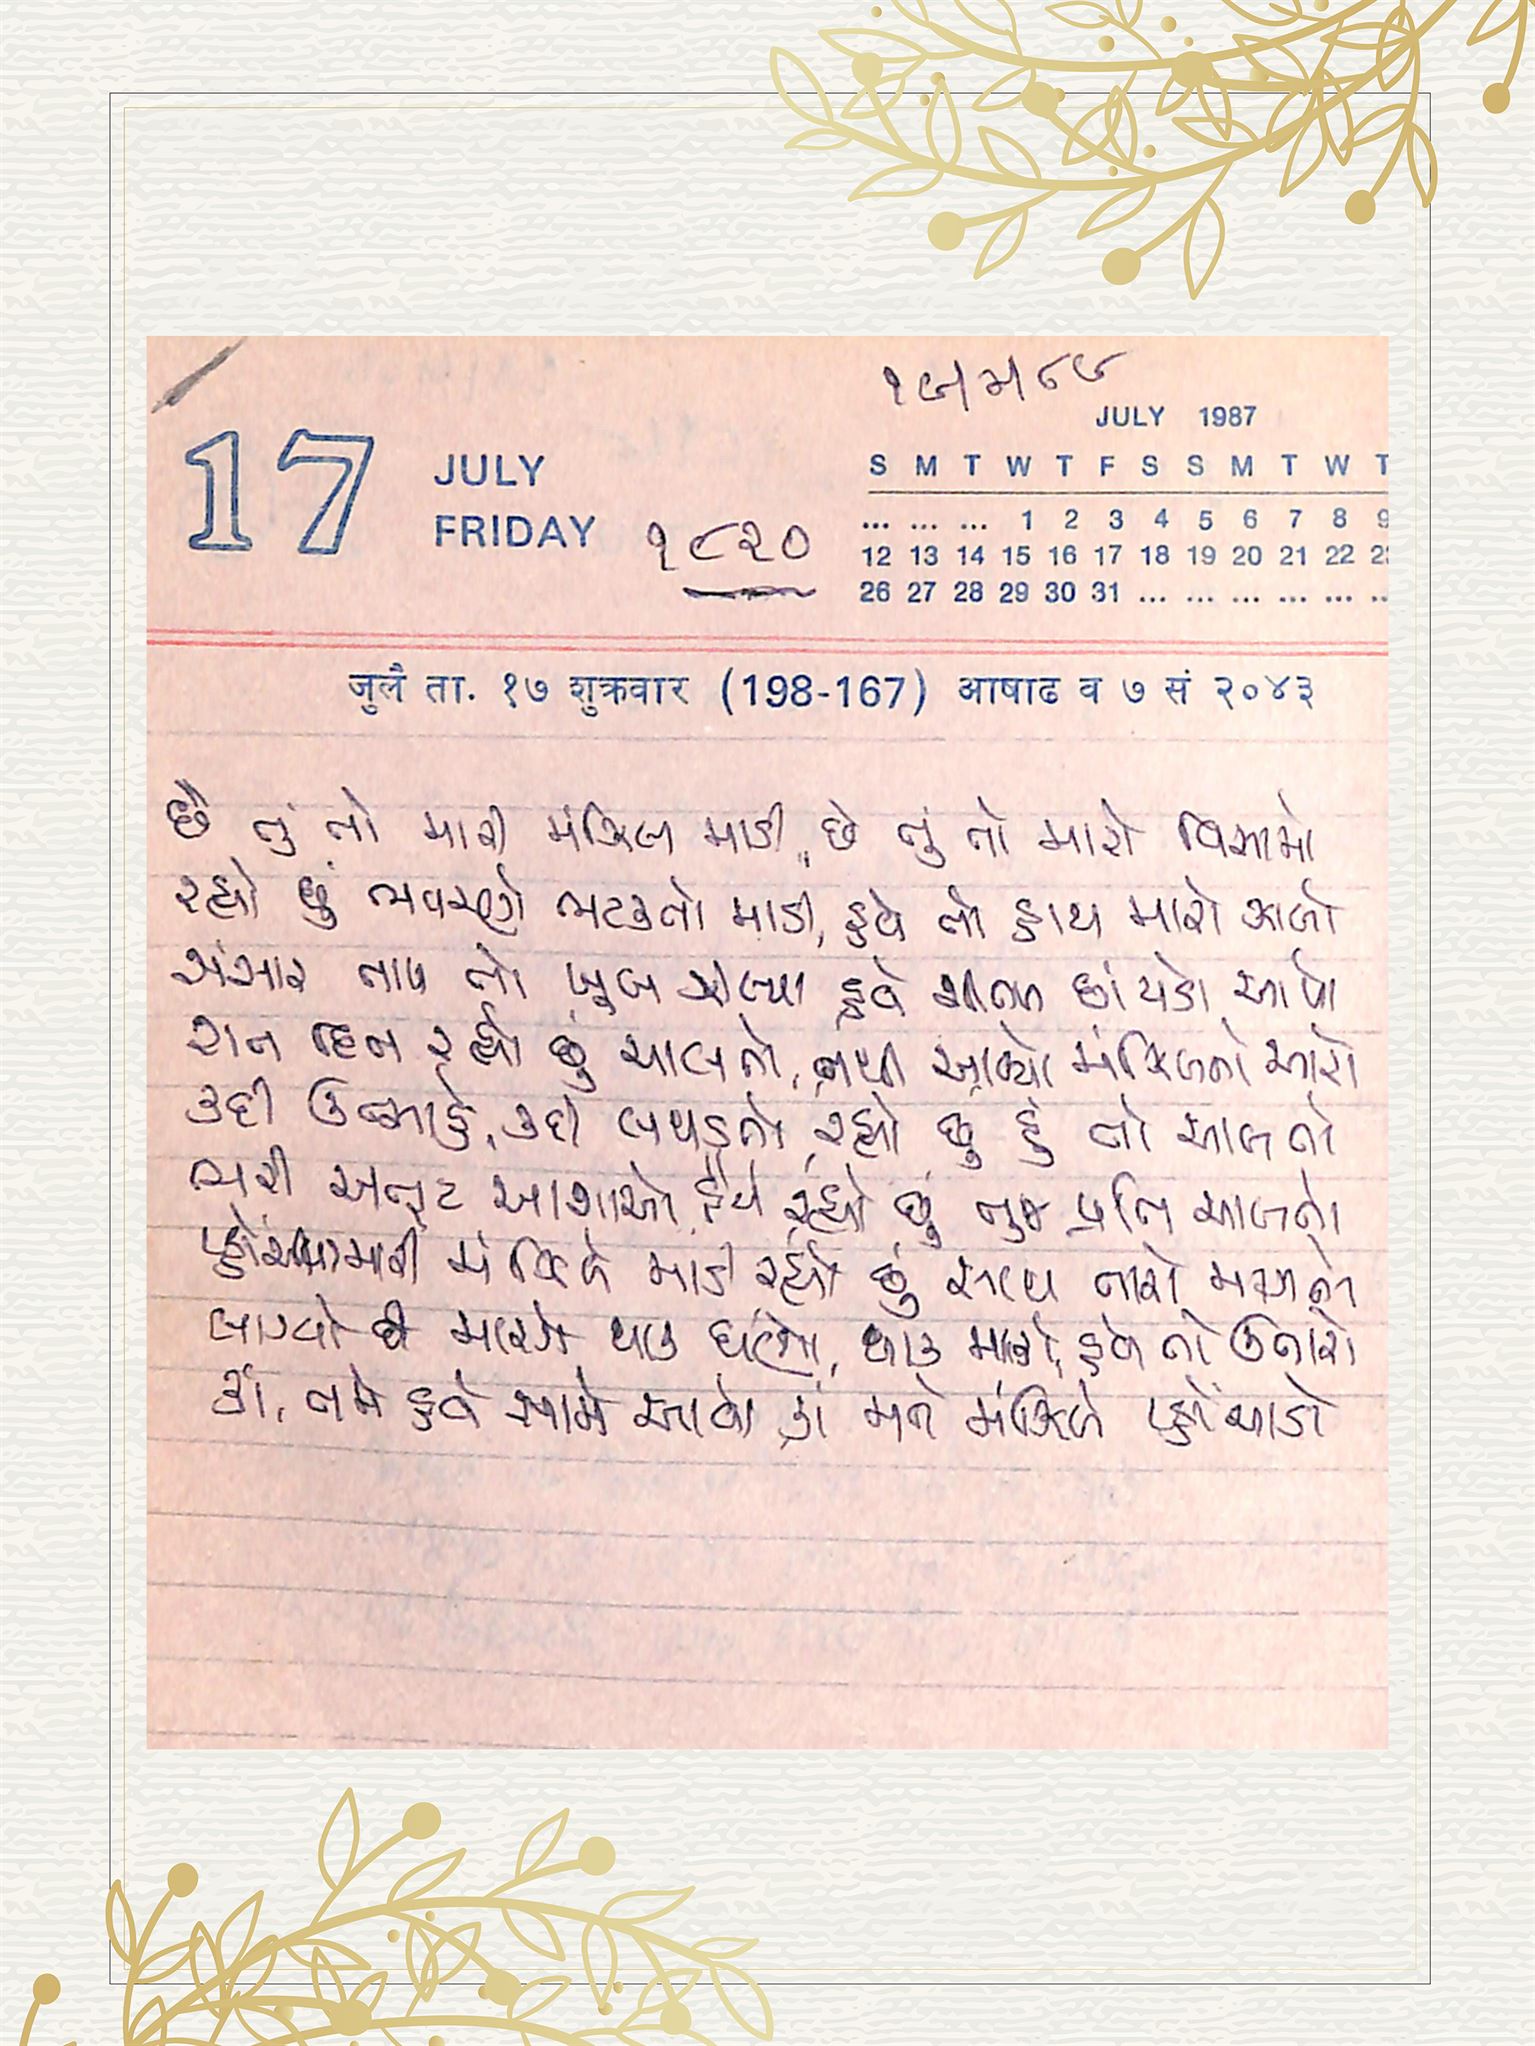 JULY 1987
S M T W T F S S M T W T
... ... ... 1 2 3 4 5 6 7 8 9
17 JULY
FRIDAY ૧૮૨૦
12 13 14 15 16 17 18 19 20 21 22
26 27 28 29 30 31 ... ... ... ... ... ..
जुलै ता. १७ शुक्रवार (198-167) आषाढ व ७ सं २०४३
છે તું તો મારી મંઝિલ માડી, છે તું તો મારો વિસામો
રહ્યો છું ભવરણે ભટકતો માડી, હવે તો હાથ મારો ઝાલો
સંસાર તાપ તો ખૂબ ઝીલ્યા હવે શીતળ છાંયડો આપો
રાત દિન રહ્યો છું ચાલતો, નથી આવ્યો મંઝિલનો આરો
કદી ઉન્માદે, કદી લથડતો, રહ્યો છું હું તો ચાલતો
ભરી અતૂટ આશાઓ હૈયે રહ્યો છું તુજ પ્રતિ ચાલતો
મારી મંઝિલે માડી રહ્યો છું સાથ તારો માગતો
લાગ્યો છે મારગે થાક ઘણો, થાક મારો, હવે તો ઉતારો
કાં, તમે હવે સામે આવો, કાં મને મંઝિલે પ્હોંચાડો